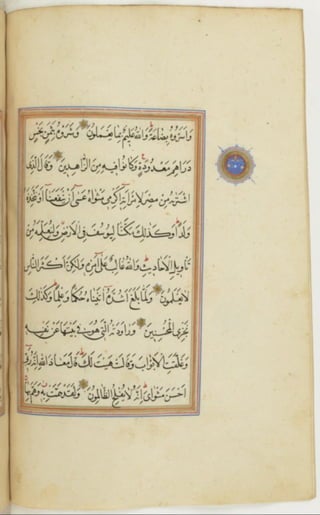 وَاَسَرُّوهُ بِضَاعَةً وَاللهُ عَلِيمٌ بِمَا يَعْمَلُونَ وَشَرَوْهُ بِثَمَنٍ بَخْسٍ
دَرَاهِمَ مَعْدُودَةٍ وَكَانُوا فِيهِ مِنَ الزَّاهِدِينَ وَقَالَ الَّذِى
اشْتَرٰيهُ مِنْ مِصْرَ لِامْرَاَتِهِ اَكْرِمِى مَثْوٰيهُ عَسٰى اَنْ يَنْفَعَنَا اَوْ نَتَّخِذَهُ
وَلَدًا وَكَذٰلِكَ مَكَّنَّا لِيُوسُفَ فِى الْاَرْضِ وَلِنُعَلِّمَهُ مِنْ
تَاْوِيلِ الْاَحَادِيثِ وَاللهُ غَالِبٌ عَلٰى اَمْرِهِ وَلٰكِنَّ اَكْثَرَ النَّاسِ
لَا يَعْلَمُونَ وَلَمَّا بَلَغَ اَشُدَّهُ اٰتَيْنَاهُ حُكْمًا وَعِلْمًا وَكَذٰلِكَ
نَجْزِى الْمُحْسِنِينَ وَرَاوَدَتْهُ الَّتِى هُوَ فِى بَيْتِهَا عَنْ نَفْسِهِ
وَغَلَّقَتِ الْاَبْوَابَ وَقَالَتْ هَيْتَ لَكَ قَالَ مَعَاذَ اللهِ اِنَّهُ رَبِّى
اَحْسَنَ مَثْوَاىَ اِنَّهُ لَا يُفْلِحُ الظَّالِمُونَ وَلَقَدْ هَمَّتْ بِهِ وَهَمَّ بِهَا